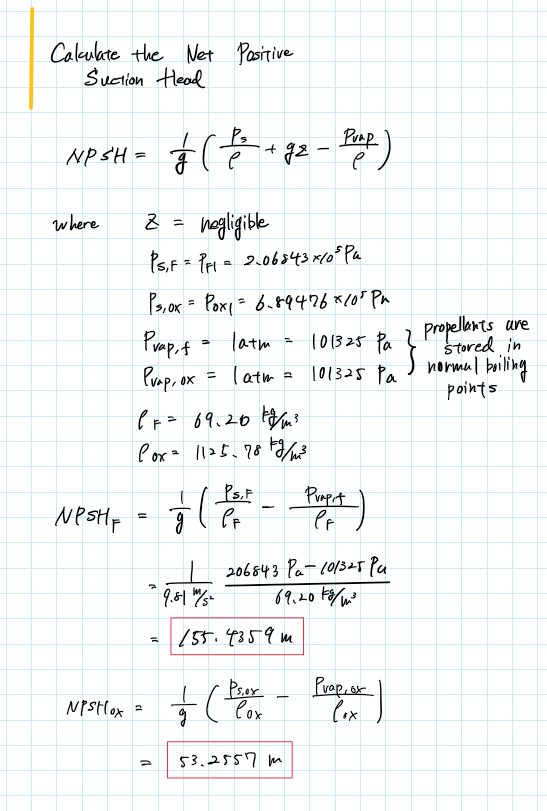 Calculate the Net Positive
Suction Head
NPSH = 1/g ( Ps/ρ + gz − Pvap/ρ )
where z = negligible
Ps,F = PF1 = 2.06843 ×10⁵ Pa
Ps,ox = Pox1 = 6.89476 ×10⁵ Pa
Pvap,f = 1 atm = 101325 Pa } propellants are
Pvap,ox = 1 atm = 101325 Pa } stored in
normal boiling
points
ρF = 69.20 kg/m³
ρox = 1125.78 kg/m³
NPSHF = 1/g ( Ps,F/ρF − Pvap,f/ρF )
= 1/(9.81 m/s²) (206843 Pa − 101325 Pa)/(69.20 kg/m³)
= 155.4359 m
NPSHox = 1/g ( Ps,ox/ρox − Pvap,ox/ρox )
= 53.2557 m